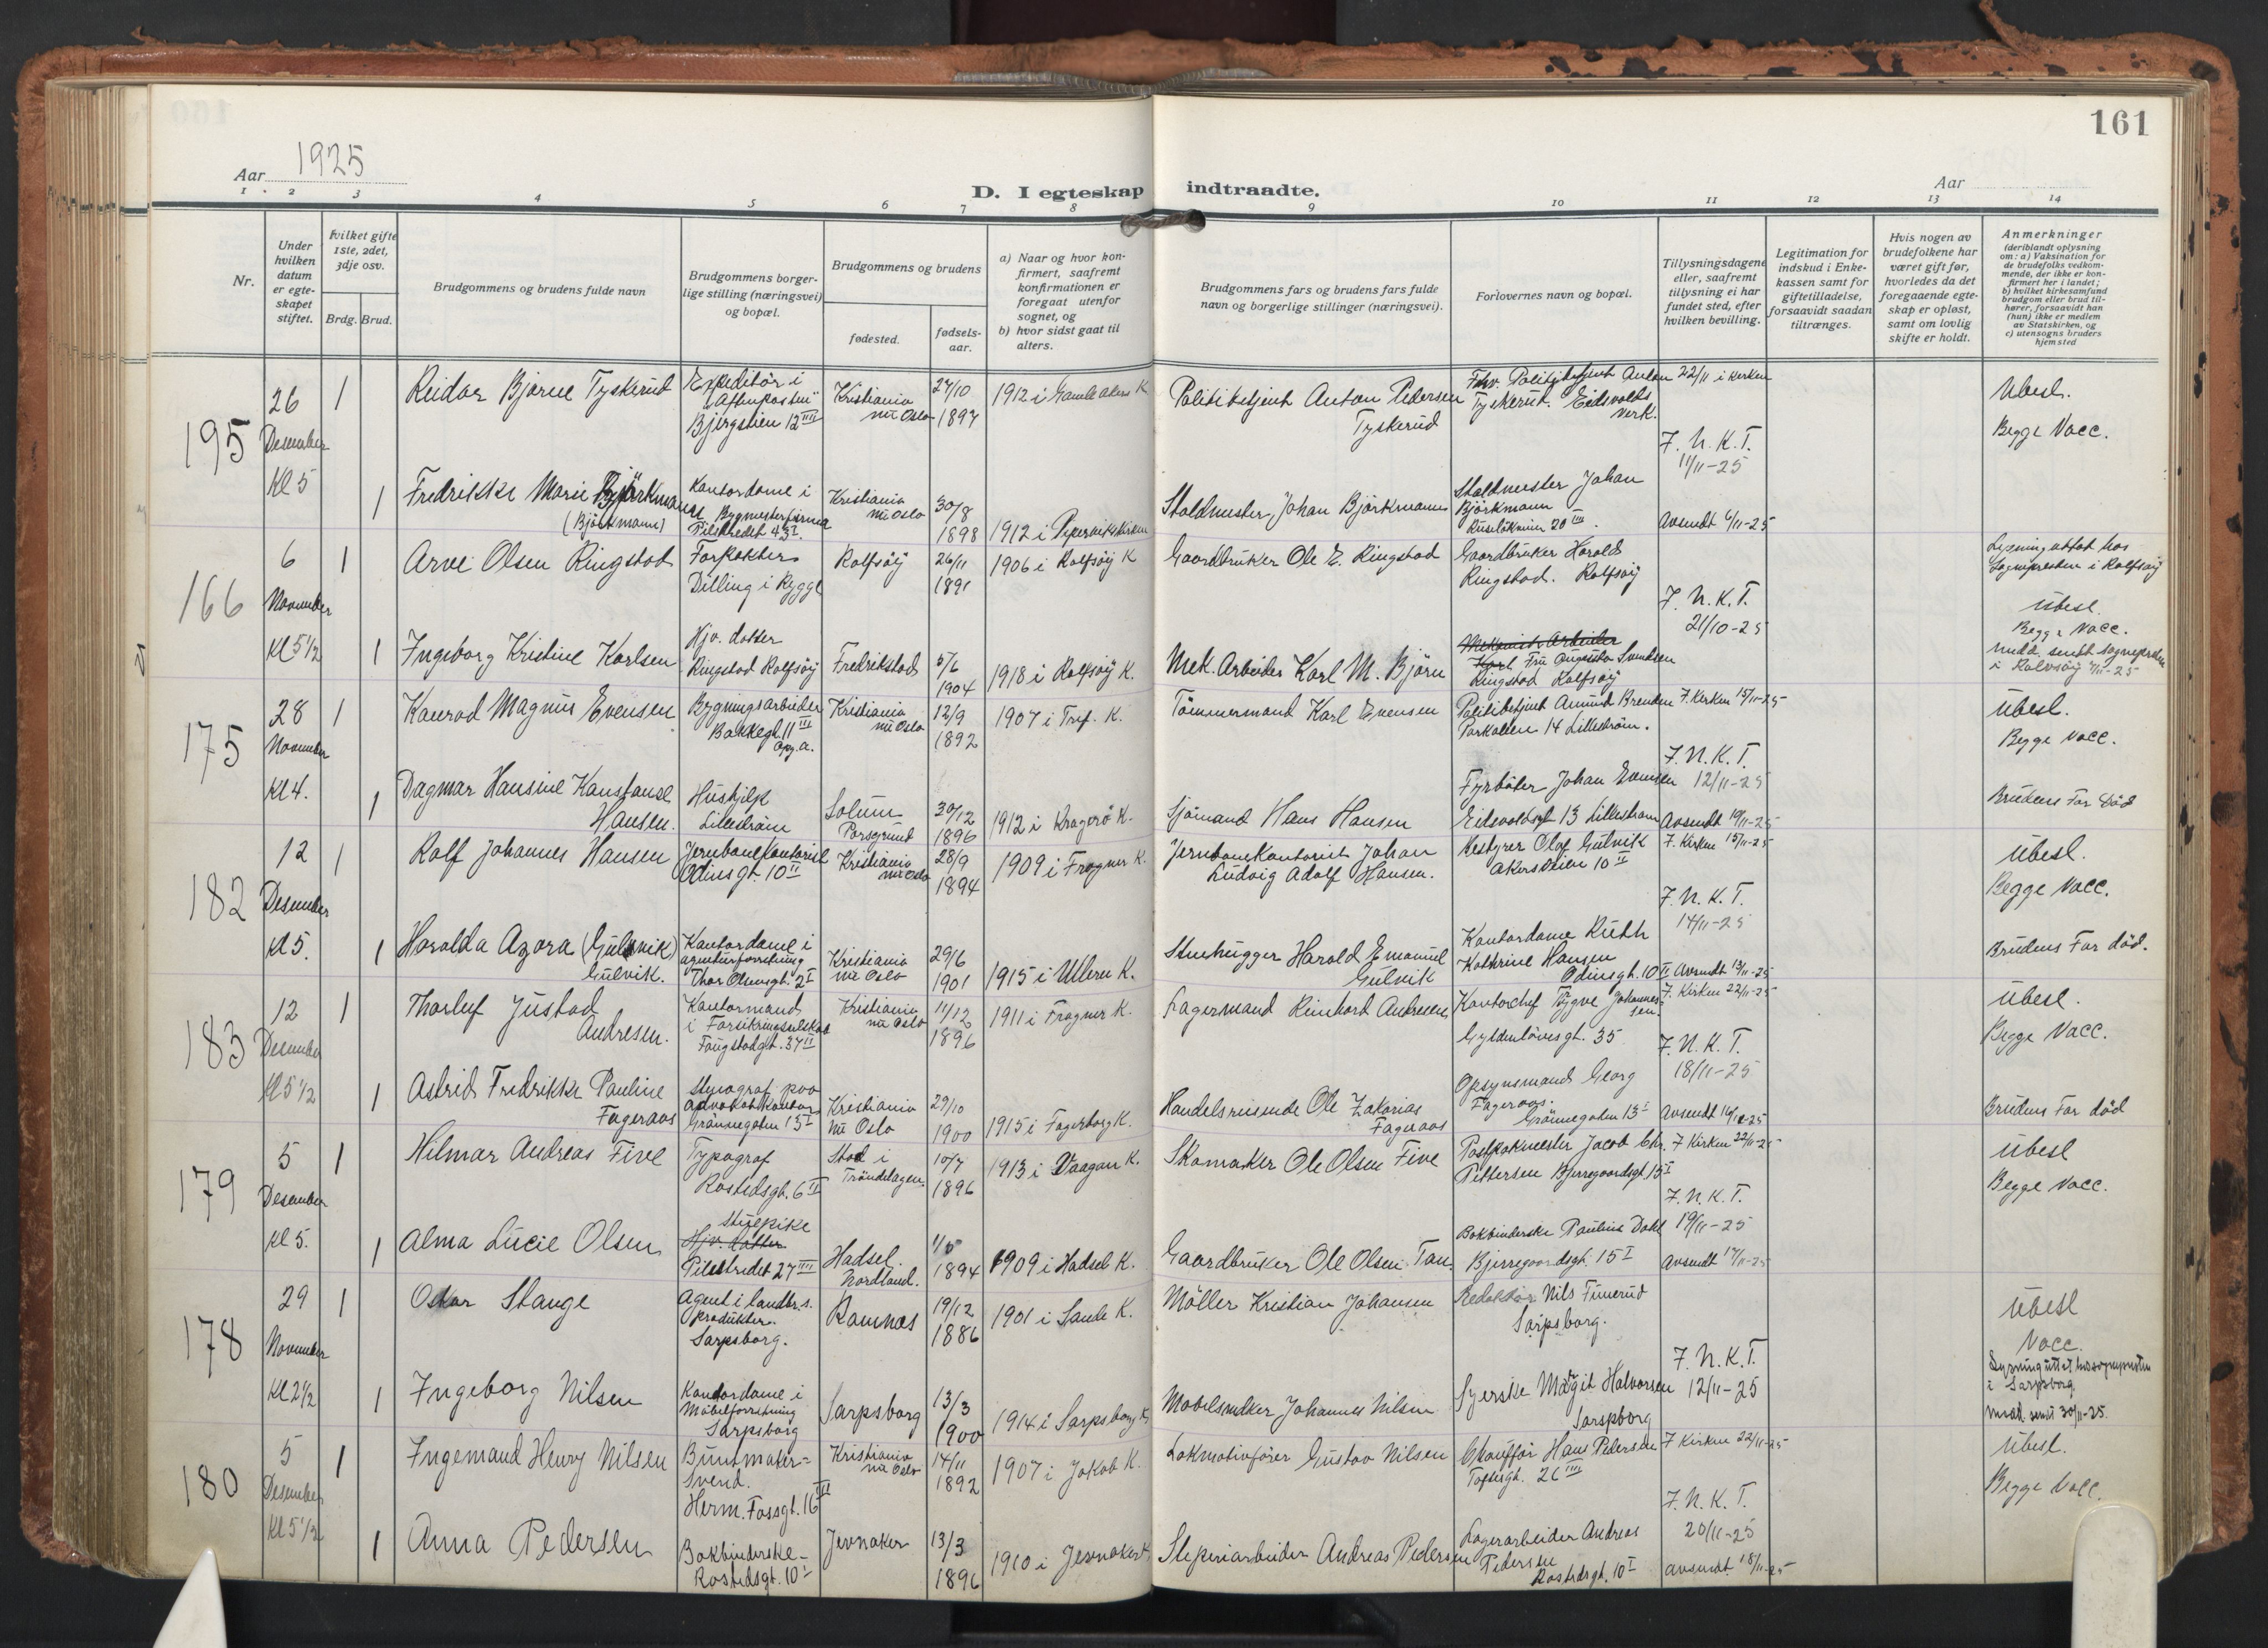 161
Aar 1925
D. I egteskap indtraadte.
Aar
1 2 3 4 5 6 7 8 9 10 11 12 13 14
Nr.
Under hvilken datum er egte-skapet stiftet.
Hvilket gifte 1ste, 2det, 3dje osv.
Brdg. Brud.
Brudgommens og brudens fulde navn
Brudgommens borger-lige stilling (næringsvei) og bopæl.
Brudgommens og brudens
fødested.
fødsels-aar.
a) Naar og hvor kon-firmert, saafremt konfirmationen er foregaat utenfor sognet, og
b) hvor sidst gaat til alters.
Brudgommens fars og brudens fars fulde navn og borgerlige stillinger (næringsvei).
Forlovernes navn og bopæl.
Tillysningsdagene eller, saafremt tillysning ei har fundet sted, efter hvilken bevilling.
Legitimation for indskud i Enke-kassen samt for giftetilladelse, forsaavidt saadan tiltrænges.
Hvis nogen av brudefolkene har været gift før, hvorledes da det foregaaende egte-skap er opløst, samt om lovlig skifte er holdt.
Anmerkninger
(deriblandt oplysning om: a) Vaksination for de brudefolks vedkom-mende, der ikke er kon-firmert her i landet; b) hvilket kirkesamfund brudgom eller brud til-hører, forsaavidt han (hun) ikke er medlem av Statskirken, og c) utensogns bruders hjemsted
195
26 Desember Kl 5
1 Reidar Bjarne Tyskerud
Expeditör i "Aftenposten" Bjergstien 12 IIII
Kristiania nu Oslo
27/10 1897
1912 i Gamle Akers K
Politibetjent Anton Pedersen Tyskerud
Fhv. Politibetjent Anton Tyskerud. Eidsvolds verk.
22/11 i kirken
F. N. K. T. 11/11-25
Ubesl.
Begge Vacc.
1 Fredrikke Marie Björkmann (Björkmann)
Kontordame i Bygmesterfirma Pilestredet 43 I
Kristiania nu Oslo
30/8 1898
1912 i Piperviks kirken
Staldmester Johan Björkmann
Staldmester Johan Björkmann
Avsendt 6/11-25
166
6 November Kl 5 1/2
1 Arve Olsen Ringstad
Forpakter Dilling i Rygge
Rolfsöy
26/11 1891
1906 i Rolfsöy K
Gaardbruker Ole E. Ringstad
Gaardbruker Harald Ringstad. Rolfsöy
F. N. K. T. 21/10-25
Lysning uttat hos Sognepresten i Rolfsöy
Ubesl.
Begge Vacc.
medd. sendt sognepresten i Rolvsöy
1 Ingeborg Kristine Karlsen
Hjv. datter Ringstad Rolfsöy
Fredrikstad
5/6 1904
1918 i Rolfsöy K.
Mek. Arbeider Karl M. Björn
Mekanisk Arbeider Karl Fru Augusta Svendsen Ringstad Rolfsöy
175
28 November Kl 4.
1 Konrad Magnus Evensen
Bygningsarbeider Bakkegt. 11 III opg. a.
Kristiania nu Oslo
12/9 1892
1907 i Tref. K.
Tömmermand Karl Evensen
Politibetjent Amund Brenden Parkalleen 14 Lilleström.
F. Kirken 15/11-25
F. N. K. T. 12/11-25
Ubesl.
Begge Vacc.
1 Dagmar Hansine Konstanse Hansen.
Hushjelp Lilleström
Solum Porsgrund
30/12 1896
1912 i Kragerö K.
Sjömand Hans Hansen
Fyrböter Johan Evensen Eidsvoldsgt 13 Lilleström
Avsendt 19/11-25
Brudens Far död
182
12 Desember Kl 5.
1 Rolf Johannes Hansen
Jernbanekontorist Odinsgt. 10 II
Kristiania nu Oslo
28/9 1894
1909 i Frogner K.
Jernbanekontorist Johan Ludvig Adolf Hansen.
Bestyrer Olaf Gulvik Akersveien 10 II
F. Kirken 15/11-25
F. N. K. T. 14/11-25
Ubesl.
Begge Vacc.
1 Haralda Azora (Gulvik) Gulvik.
Kontordame i agenturforretning Thor Olsensgt. 2 I
Kristiania nu Oslo
29/6 1901
1915 i Ullern K.
Stenhugger Harald Emanuel Gulvik
Kontordame Ruth Kathrine Hansen Odinsgt. 10 II
Avsendt 13/11-25
Brudens Far död.
183
12 Desember Kl 5 1/2
1 Thorleif Justad Andresen.
Kontormand i Forsikringsselskap Faugstadgt. 37 II
Kristiania nu Oslo
11/12 1896
1911 i Frogner K.
Lagermand Reinhard Andresen
Kontorchef Trygve Johannessen. Gyldenlövesgt. 35
F. Kirken 22/11-25
F. N. K. T. 18/11-25
Ubesl.
Begge Vacc.
1 Astrid Fredrikke Pauline Fageraas
Stenograf paa advokatkontor Grönnegaten 13 I
Kristiania nu Oslo
29/10 1900
1915 i Fagerborg K.
Handelsreisende Ole Zakarias Fageraas
Opsynsmand Georg Fageraas. Grönnegaten 13 I
Avsendt
Brudens Far död
179
5 Desember Kl 5.
1 Hilmar Andreas Five
Typograf Rostedsgt. 6 II
Stod i Tröndelagen.
10/7 1896
1913 i Vaagan K.
Skomaker Ole Olsen Five
Postpakmester Jacob Chr. Pettersen Bjerregaardsgt. 15 I
F. Kirken 22/11-25
F. N. K. T. 19/11-25
Ubesl
Begge Vacc.
1 Alma Lucie Olsen
Stuepike Hjv. datter Pilestredet 27 IIII
Hadsel. Nordland.
1894
1909 i Hadsel K.
Gaardbruker Ole Olsen Tan.
Bokbinderske Pauline Dahl Bjerregaardsgt. 15 I
Avsendt 17/11-25
178
29 November Kl 2 1/2
1 Oskar Stange
Agent i landbr.s. produkter. Sarpsborg.
Ramnes
19/12 1886
1901 i Sande K.
Möller Kristian Johansen
Redaktör Nils Finnerud Sarpsborg.
F. N. K. T. 12/11-25
Ubesl
Vacc.
Lysning uttat hos sognepresten i Sarpsborg
medd. sendt 30/11-25.
1 Ingeborg Nilsen
Kontordame i Möbelforretning Sarpsborg
Sarpsborg
13/3 1900
1914 i Sarpsborg K.
Möbelsnekker Johannes Nilsen
Syerske Magit Halvorsen Sarpsborg
180
5 Desember Kl 5 1/2
1 Ingemand Henry Nilsen
Buntmaker-Svend. Herm. Fossgt. 16 III
Kristiania nu Oslo
14/11 1892
1907 i Jakob K.
Lokomotivförer Gustav Nilsen
Chaufför Hans Pedersen Toftesgt. 26 IIII
F Kirken 22/11-25
F. N. K. T. 20/11-25
Ubesl.
Begge Vacc.
1 Anna Pedersen
Bokbinderske - Rostedsgt. 10 I
Jevnaker
13/3 1896
1910 i Jevnaker K.
Sliperiarbeider Andreas Pedersen
Lagerarbeider Andreas Pedersen Rostedsgt. 10 I
Avsendt 18/11-25